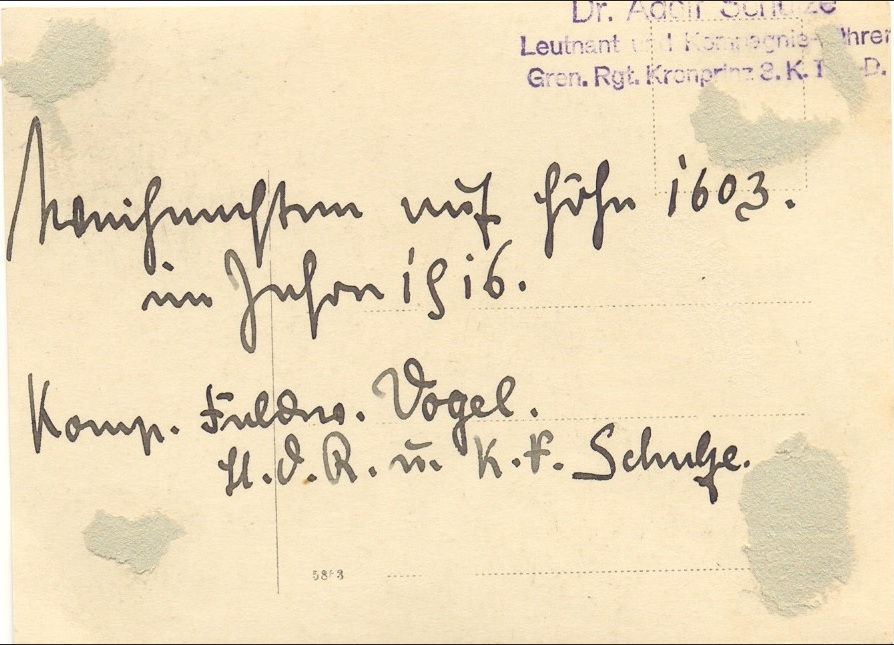 Dr. Adolf Schulze
Leutnant und Kompagnie-Führer
Gren. Rgt. Kronprinz 3. K.
Weihnachten auf Höhe 1603.
im Jahre 1916.
Komp. Feldw. Vogel.
Lt. d. R. u. K. F. Schulze.